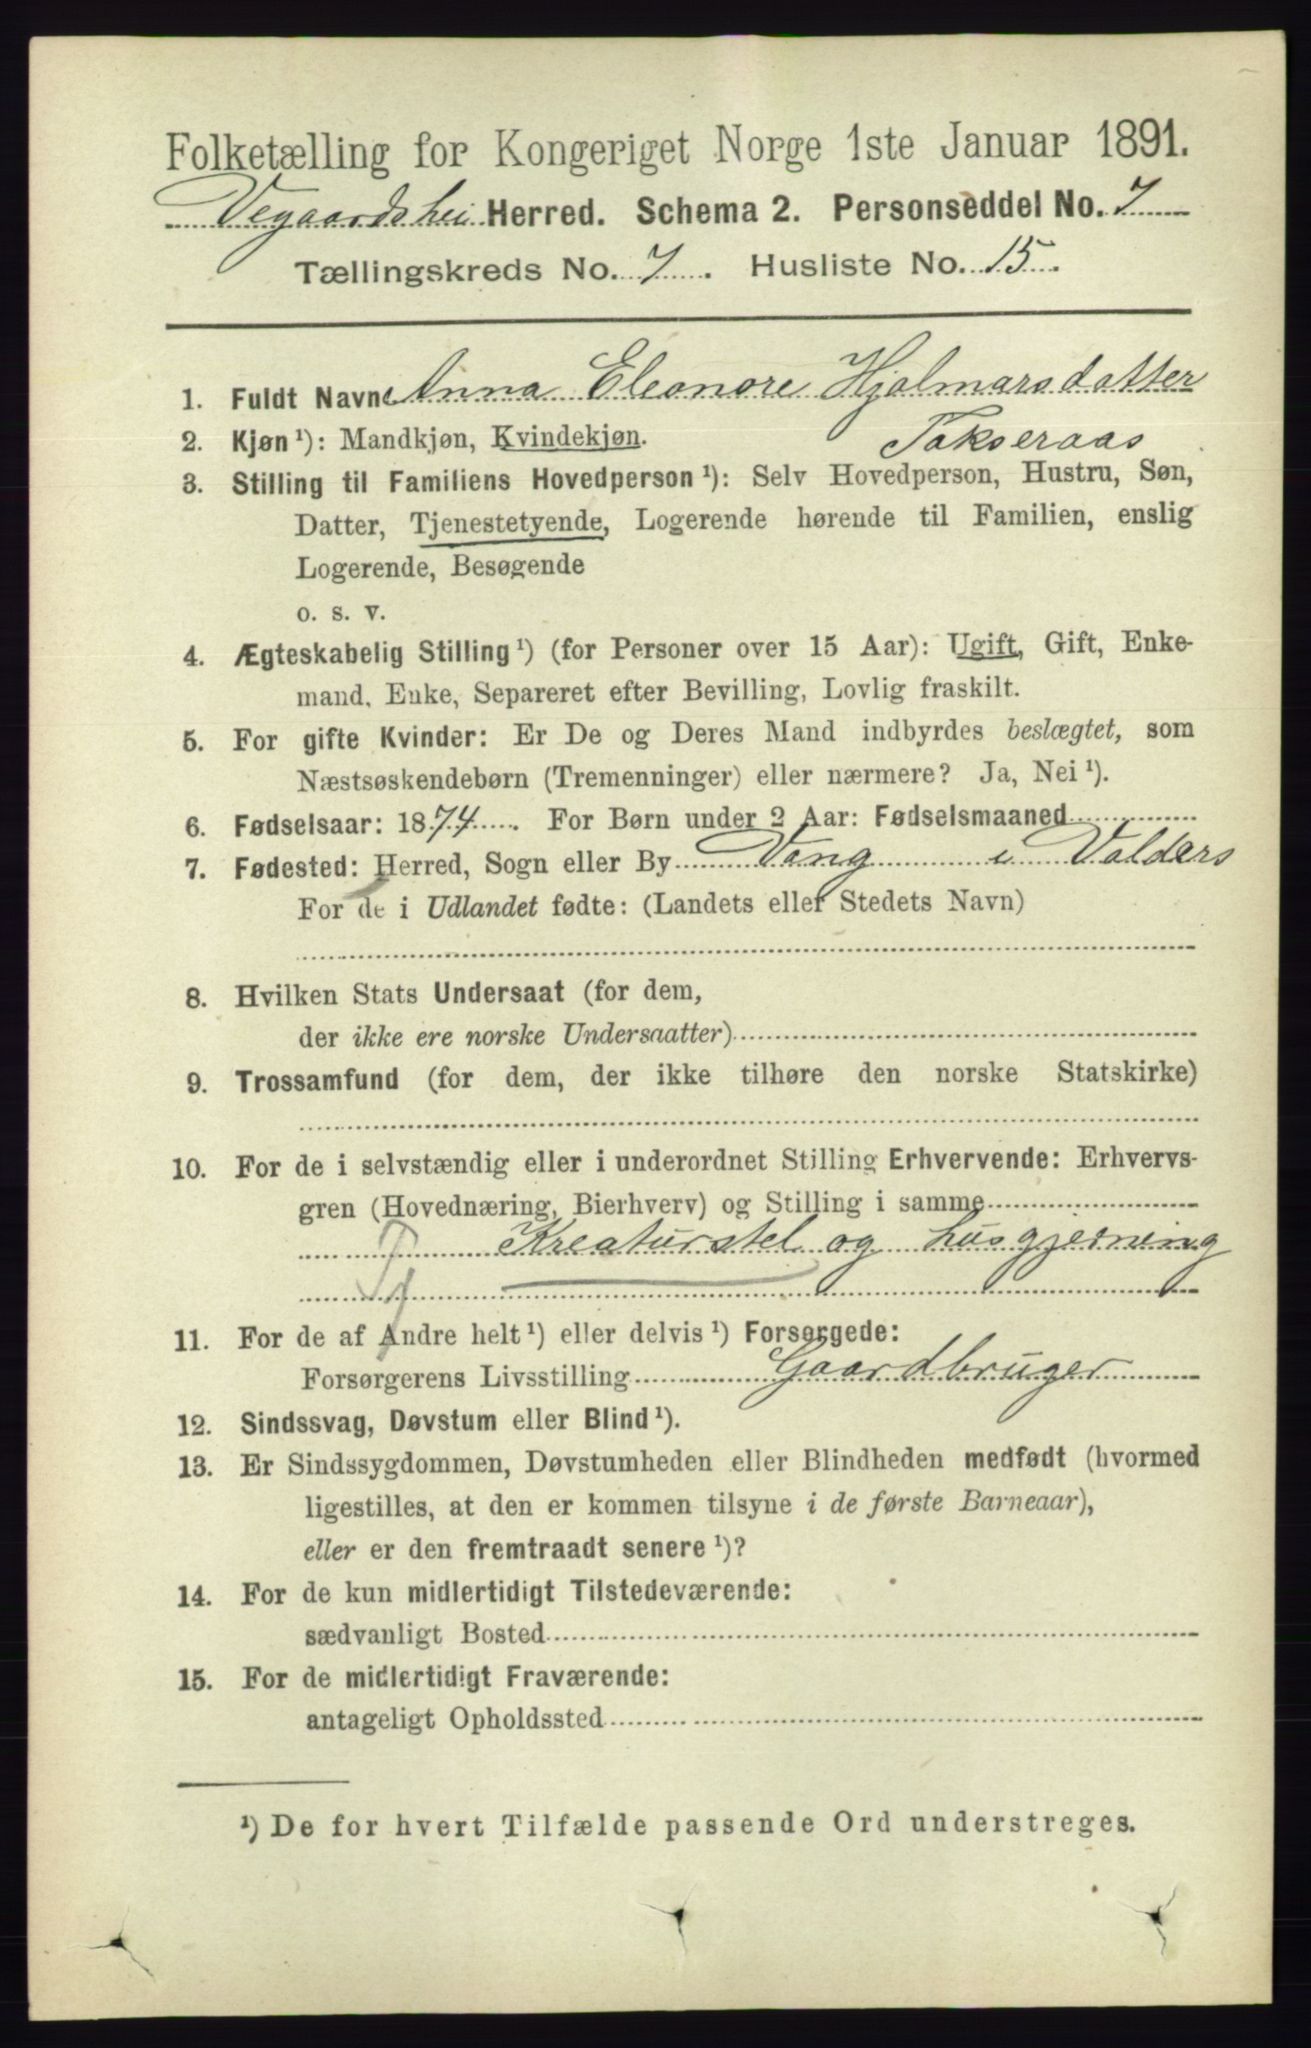 Folketælling for Kongeriget Norge 1ste Januar 1891.
Vegaardshei Herred. Schema 2. Personseddel No. 7
Tællingskreds No. 7. Husliste No. 15.
1. Fuldt Navn: Anna Eleonore Hjalmarsdatter
2. Kjøn ¹): Mandkjøn, Kvindekjøn. Takseraas
3. Stilling til Familiens Hovedperson ¹): Selv Hovedperson, Hustru, Søn,
Datter, Tjenestetyende, Logerende hørende til Familien, enslig
Logerende, Besøgende
o. s. v.
4. Ægteskabelig Stilling ¹) (for Personer over 15 Aar): Ugift, Gift, Enke-
mand, Enke, Separeret efter Bevilling, Lovlig fraskilt.
5. For gifte Kvinder: Er De og Deres Mand indbyrdes beslægtet, som
Næstsøskendebørn (Tremenninger) eller nærmere? Ja, Nei ¹).
6. Fødselsaar: 1874. For Børn under 2 Aar: Fødselsmaaned
7. Fødested: Herred, Sogn eller By Vang i Valders
For de i Udlandet fødte: (Landets eller Stedets Navn)
8. Hvilken Stats Undersaat (for dem,
der ikke ere norske Undersaatter)
9. Trossamfund (for dem, der ikke tilhøre den norske Statskirke)
10. For de i selvstændig eller i underordnet Stilling Erhvervende: Erhvervs-
gren (Hovednæring, Bierhverv) og Stilling i samme
Kreaturstel og husgjerning
11. For de af Andre helt ¹) eller delvis ¹) Forsørgede:
Forsørgerens Livsstilling Gaardbruger
12. Sindssvag, Døvstum eller Blind ¹).
13. Er Sindssygdommen, Døvstumheden eller Blindheden medfødt (hvormed
ligestilles, at den er kommen tilsyne i de første Barneaar),
eller er den fremtraadt senere ¹)?
14. For de kun midlertidigt Tilstedeværende:
sædvanligt Bosted
15. For de midlertidigt Fraværende:
antageligt Opholdssted
¹) De for hvert Tilfælde passende Ord understreges.